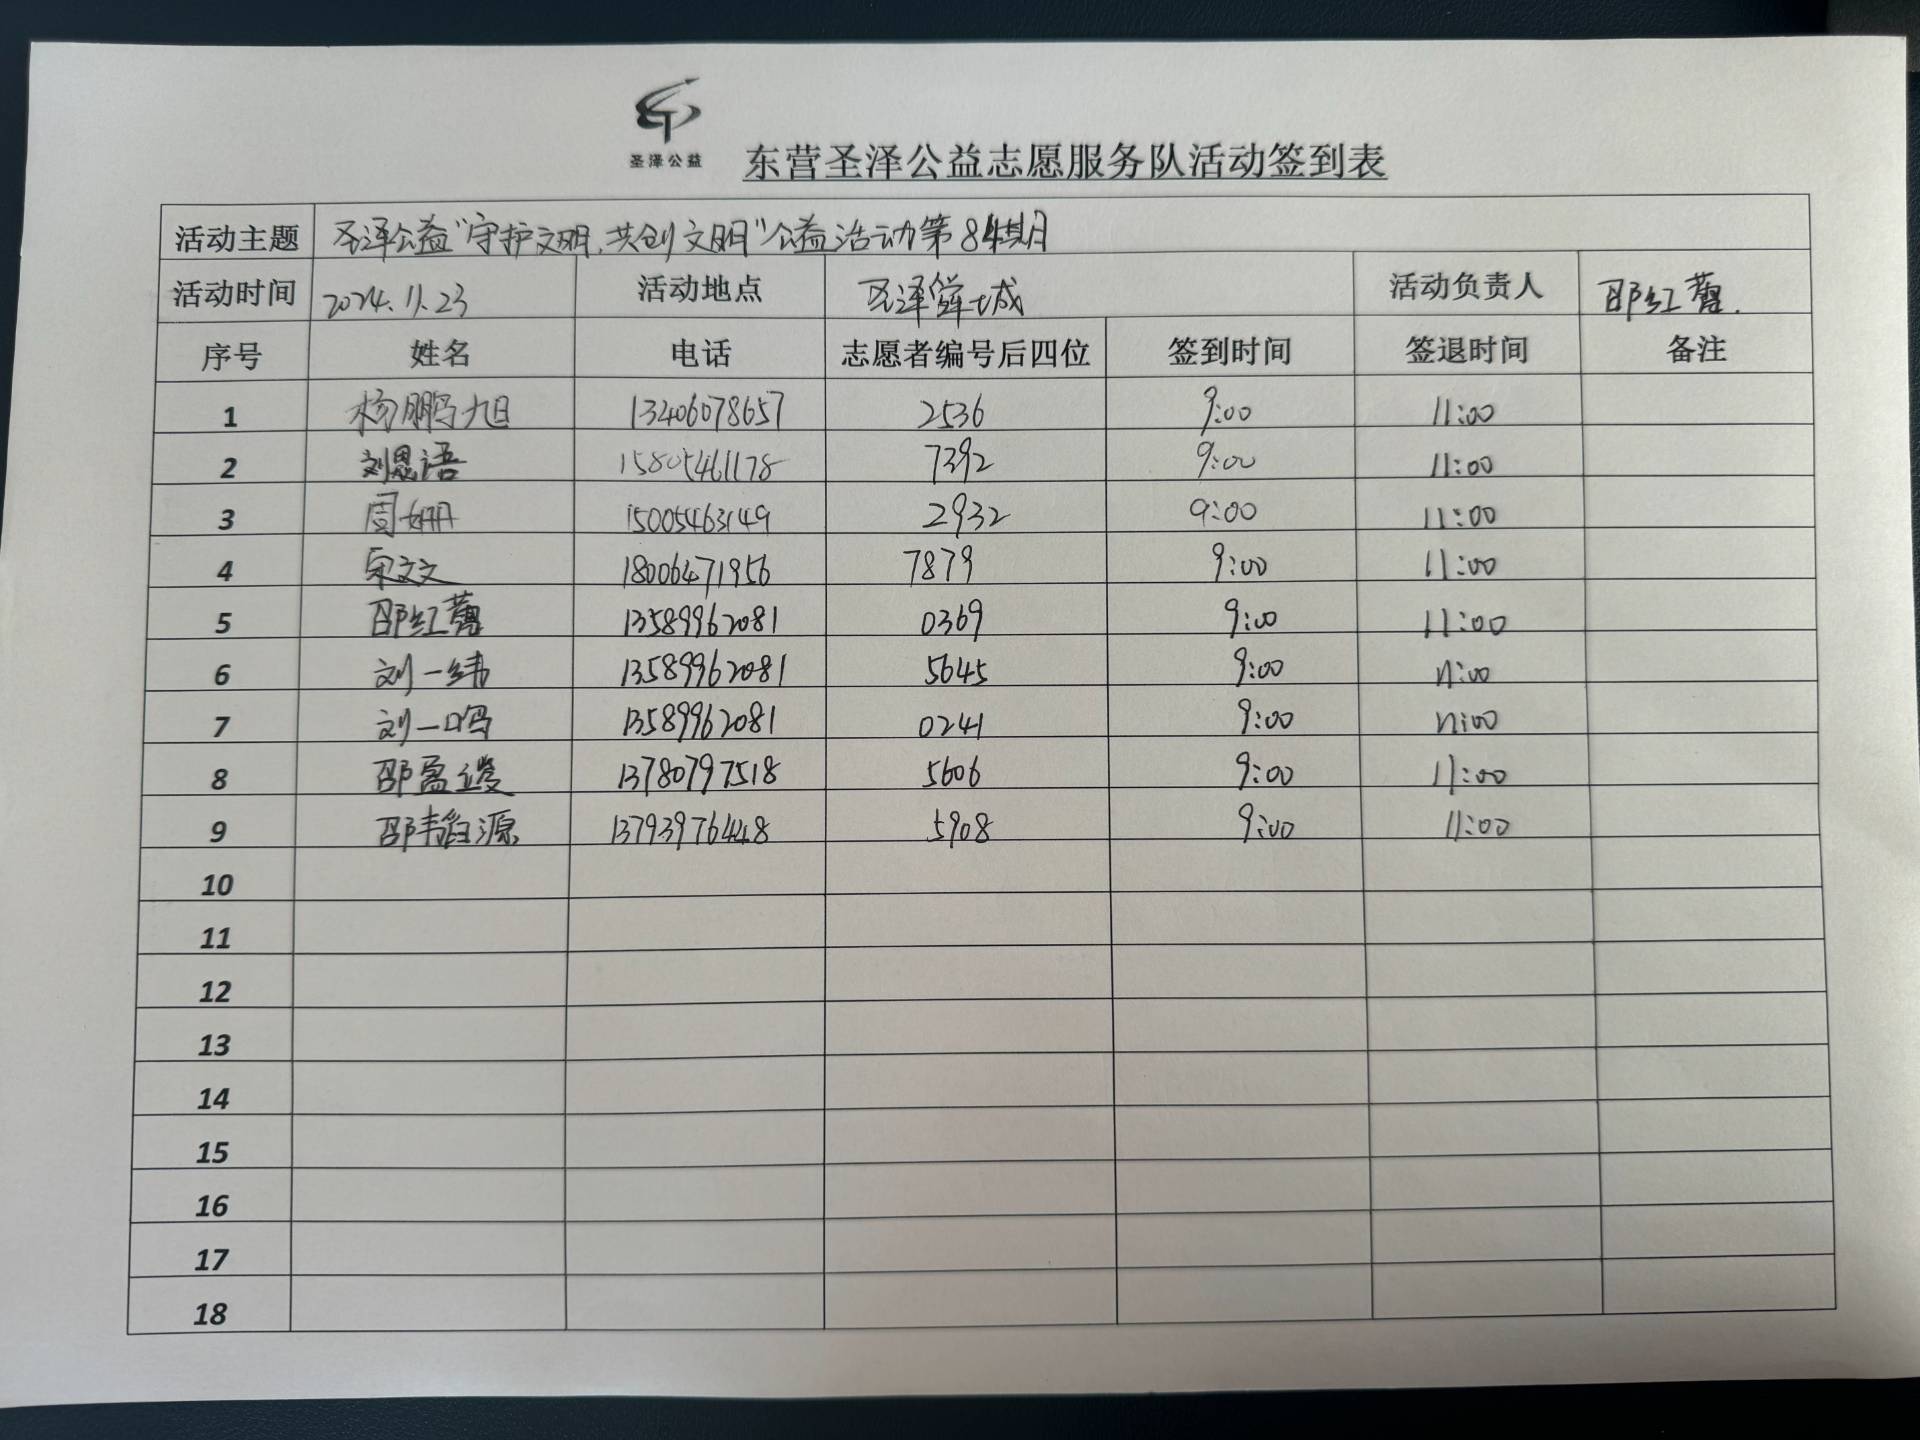 圣泽公益
东营圣泽公益志愿服务队活动签到表
活动主题 圣泽公益“守护文明,共创文明”公益活动第84期
活动时间 2024.11.23 活动地点 圣泽 城 活动负责人 邵红
序号 姓名 电话 志愿者编号后四位 签到时间 签退时间 备注
1 杨鹏旭 13406078657 2536 9:00 11:00
2 刘恩语 15805461178 7392 9:00 11:00
3 周姗 15005463149 2932 9:00 11:00
4 宋文文 18006471956 7879 9:00 11:00
5 邵红 13589962081 0369 9:00 11:00
6 刘一纬 13589962081 5645 9:00 11:00
7 刘一鸣 13589962081 0241 9:00 11:00
8 邵盈 13780797518 5606 9:00 11:00
9 邵韬源 13793976448 5908 9:00 11:00
10
11
12
13
14
15
16
17
18